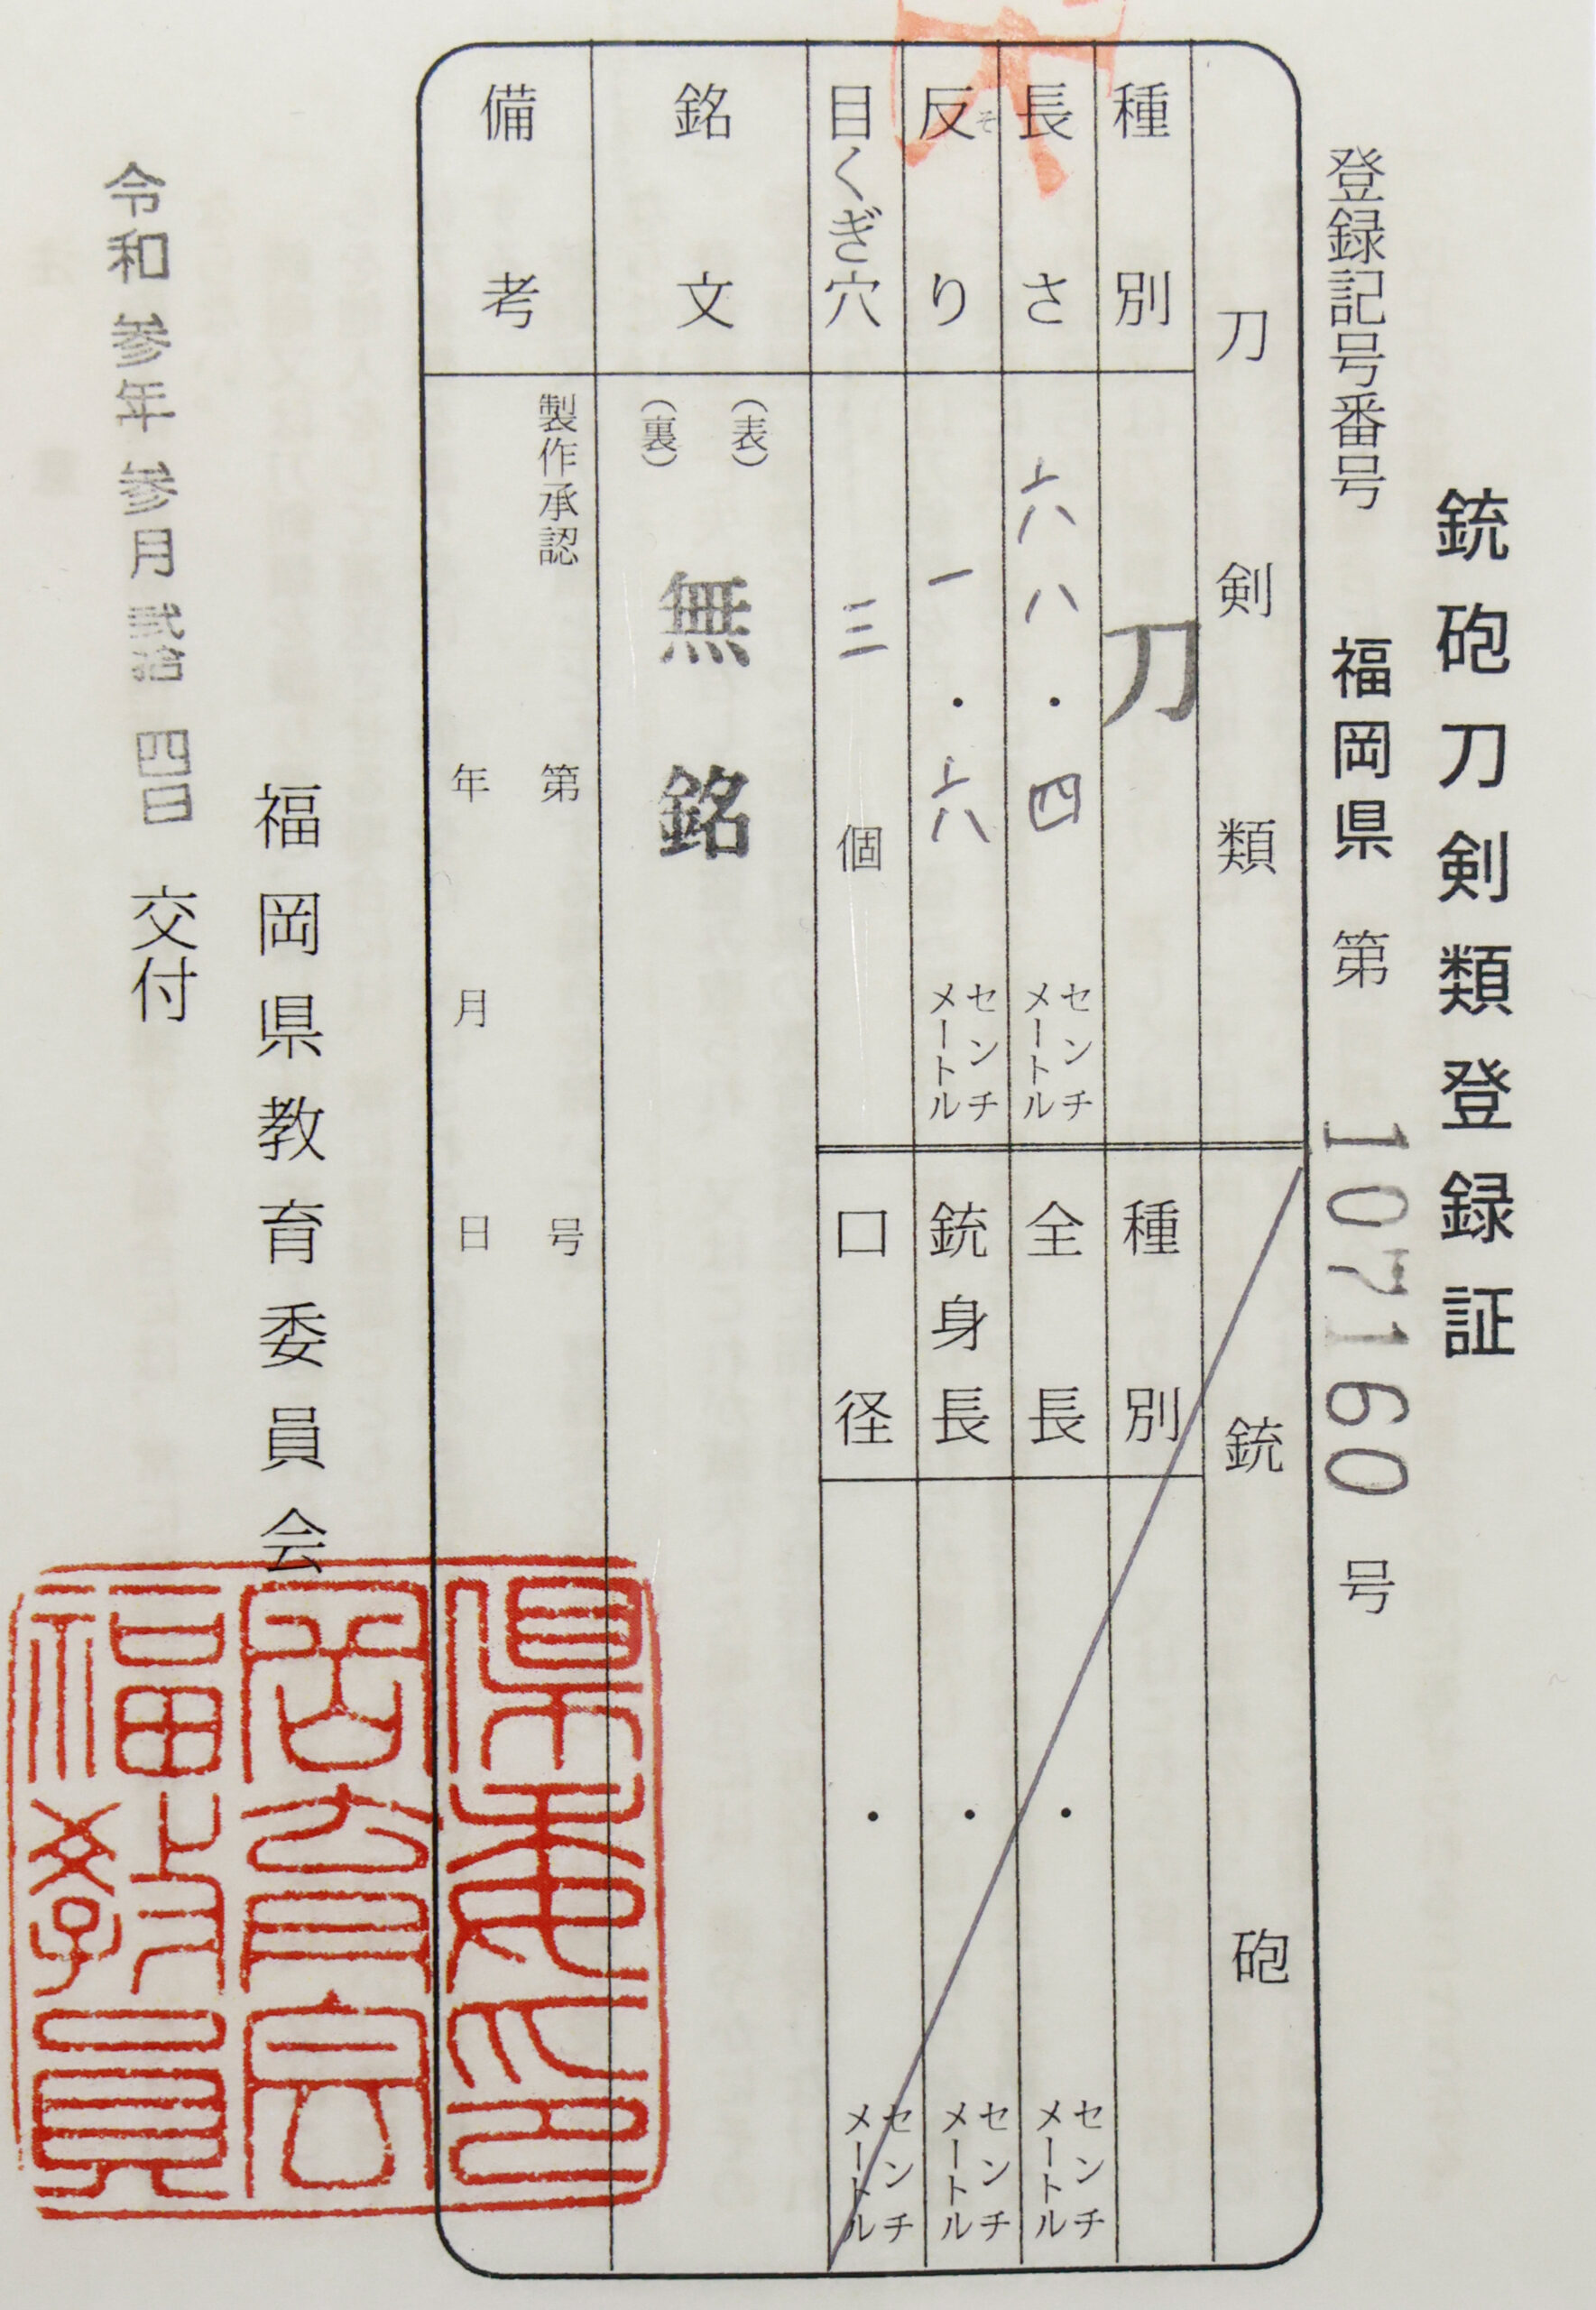 銃砲刀剣類登録証
登録記号番号 福岡県 第 107160 号
刀剣類
種別 刀
長さ 六八・四 センチメートル
反り 一・六 センチメートル
そ
目くぎ穴 三 個
銃砲
種別
全長 ・ センチメートル
銃身長 ・ センチメートル
口径 ・ センチメートル
銘文
(表)
無銘
(裏)
備考
製作承認 第 号
年 月 日
福岡県教育委員会
令和参年参月弐拾四日 交付
県委印
岡育会
福教員